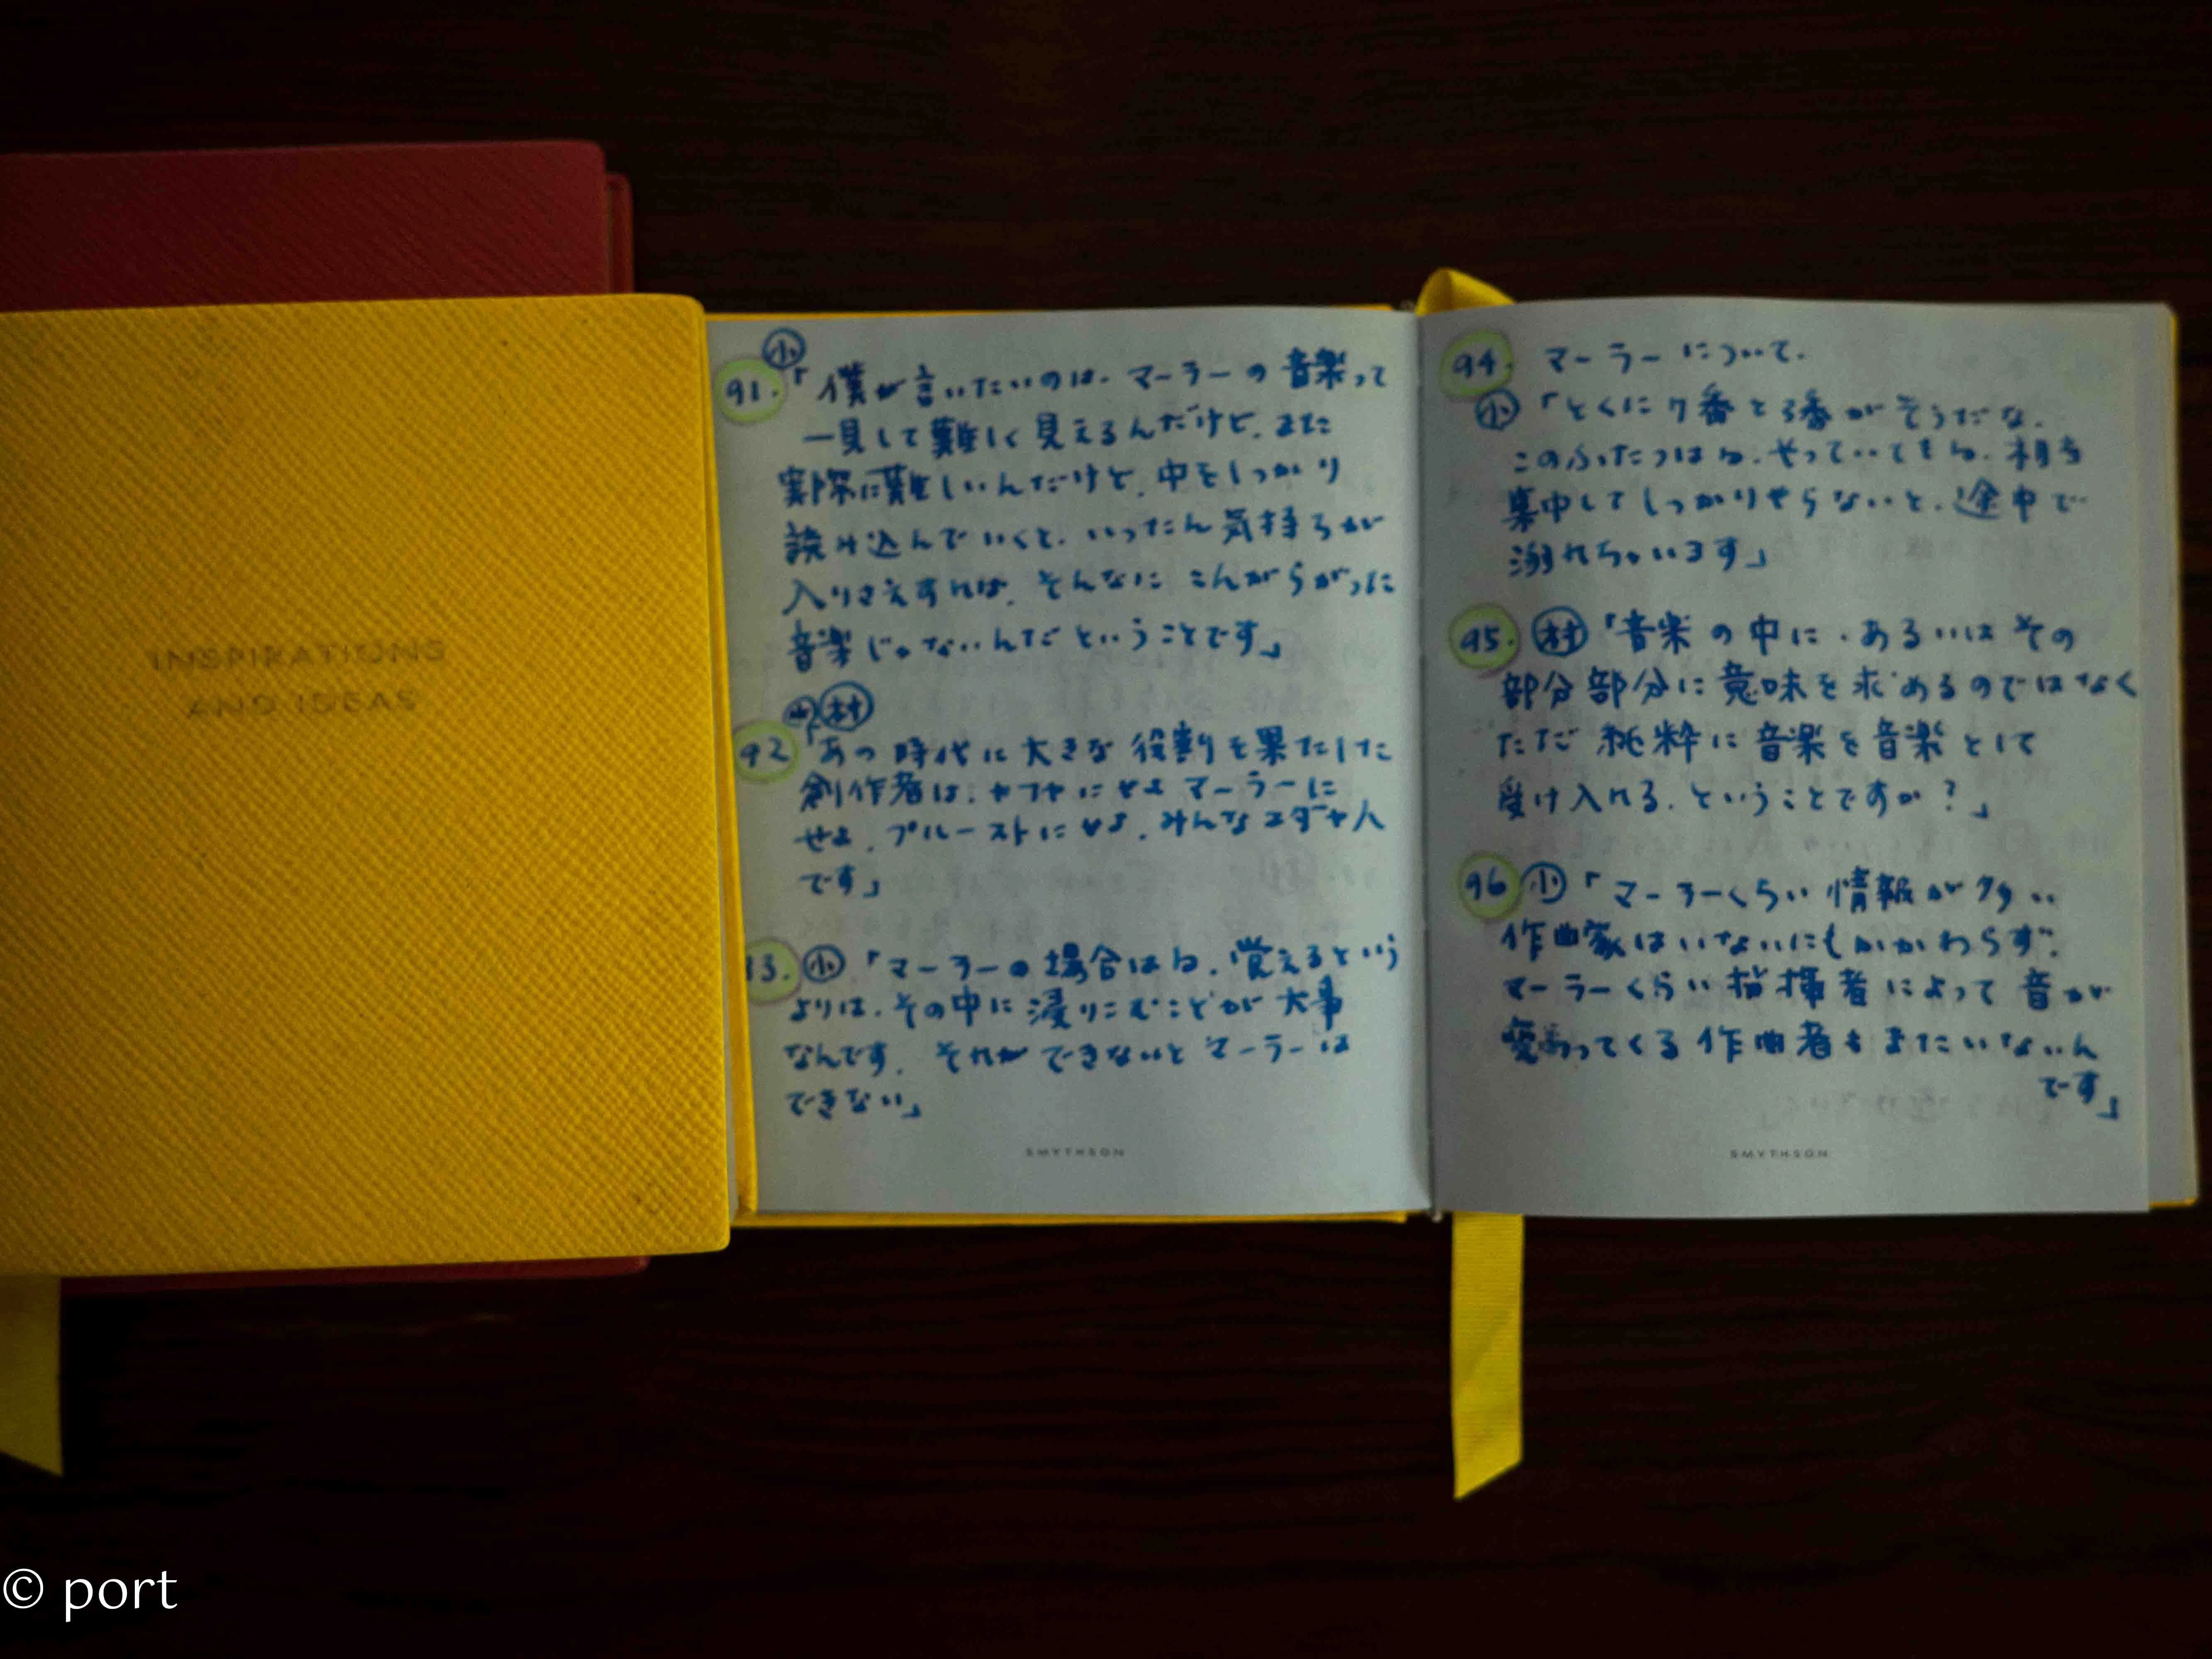 INSPIRATIONS
AND IDEAS
小
91.「僕が言いたいのは、マーラーの音楽って
一見して難しく見えるんだけど、また
実際に難しいんだけど、中をしっかり
読み込んでいくと、いったん気持ちが
入りさえすれば、そんなにこんがらがった
音楽じゃないんだということです」
村
92「あの時代に大きな役割を果たした
創作者は、カフカにせよマーラーに
せよ、プルーストにせよ、みんなユダヤ人
です」
93.小「マーラーの場合はね、覚えるという
よりは、その中に浸りこむことが大事
なんです。それができないとマーラーは
できない」
SMYTHSON
94. マーラーについて.
小「とくに7番と3番がそうだな.
このふたつはね、やっていてもね、相当
集中してしっかりやらないと、途中で
溺れちゃいます」
95. 村「音楽の中に、あるいはその
部分部分に意味を求めるのではなく
ただ純粋に音楽を音楽として
受け入れる、ということですか?」
96 小「マーラーくらい情報が多い
作曲家はいないにもかかわらず、
マーラーくらい指揮者によって音が
変わってくる作曲者もまたいないん
です」
SMYTHSON
© port